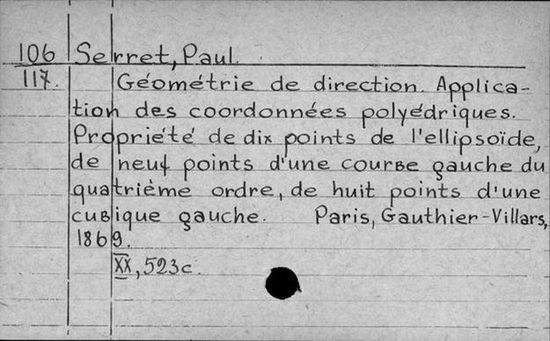 106 Serret, Paul.
117. Géométrie de direction. Applica-
tion des coordonnées polyédriques.
Propriété de dix points de l'ellipsoïde,
de neuf points d'une courbe gauche du
quatrième ordre, de huit points d'une
cubique gauche. Paris, Gauthier-Villars,
1869.
XX, 523c.